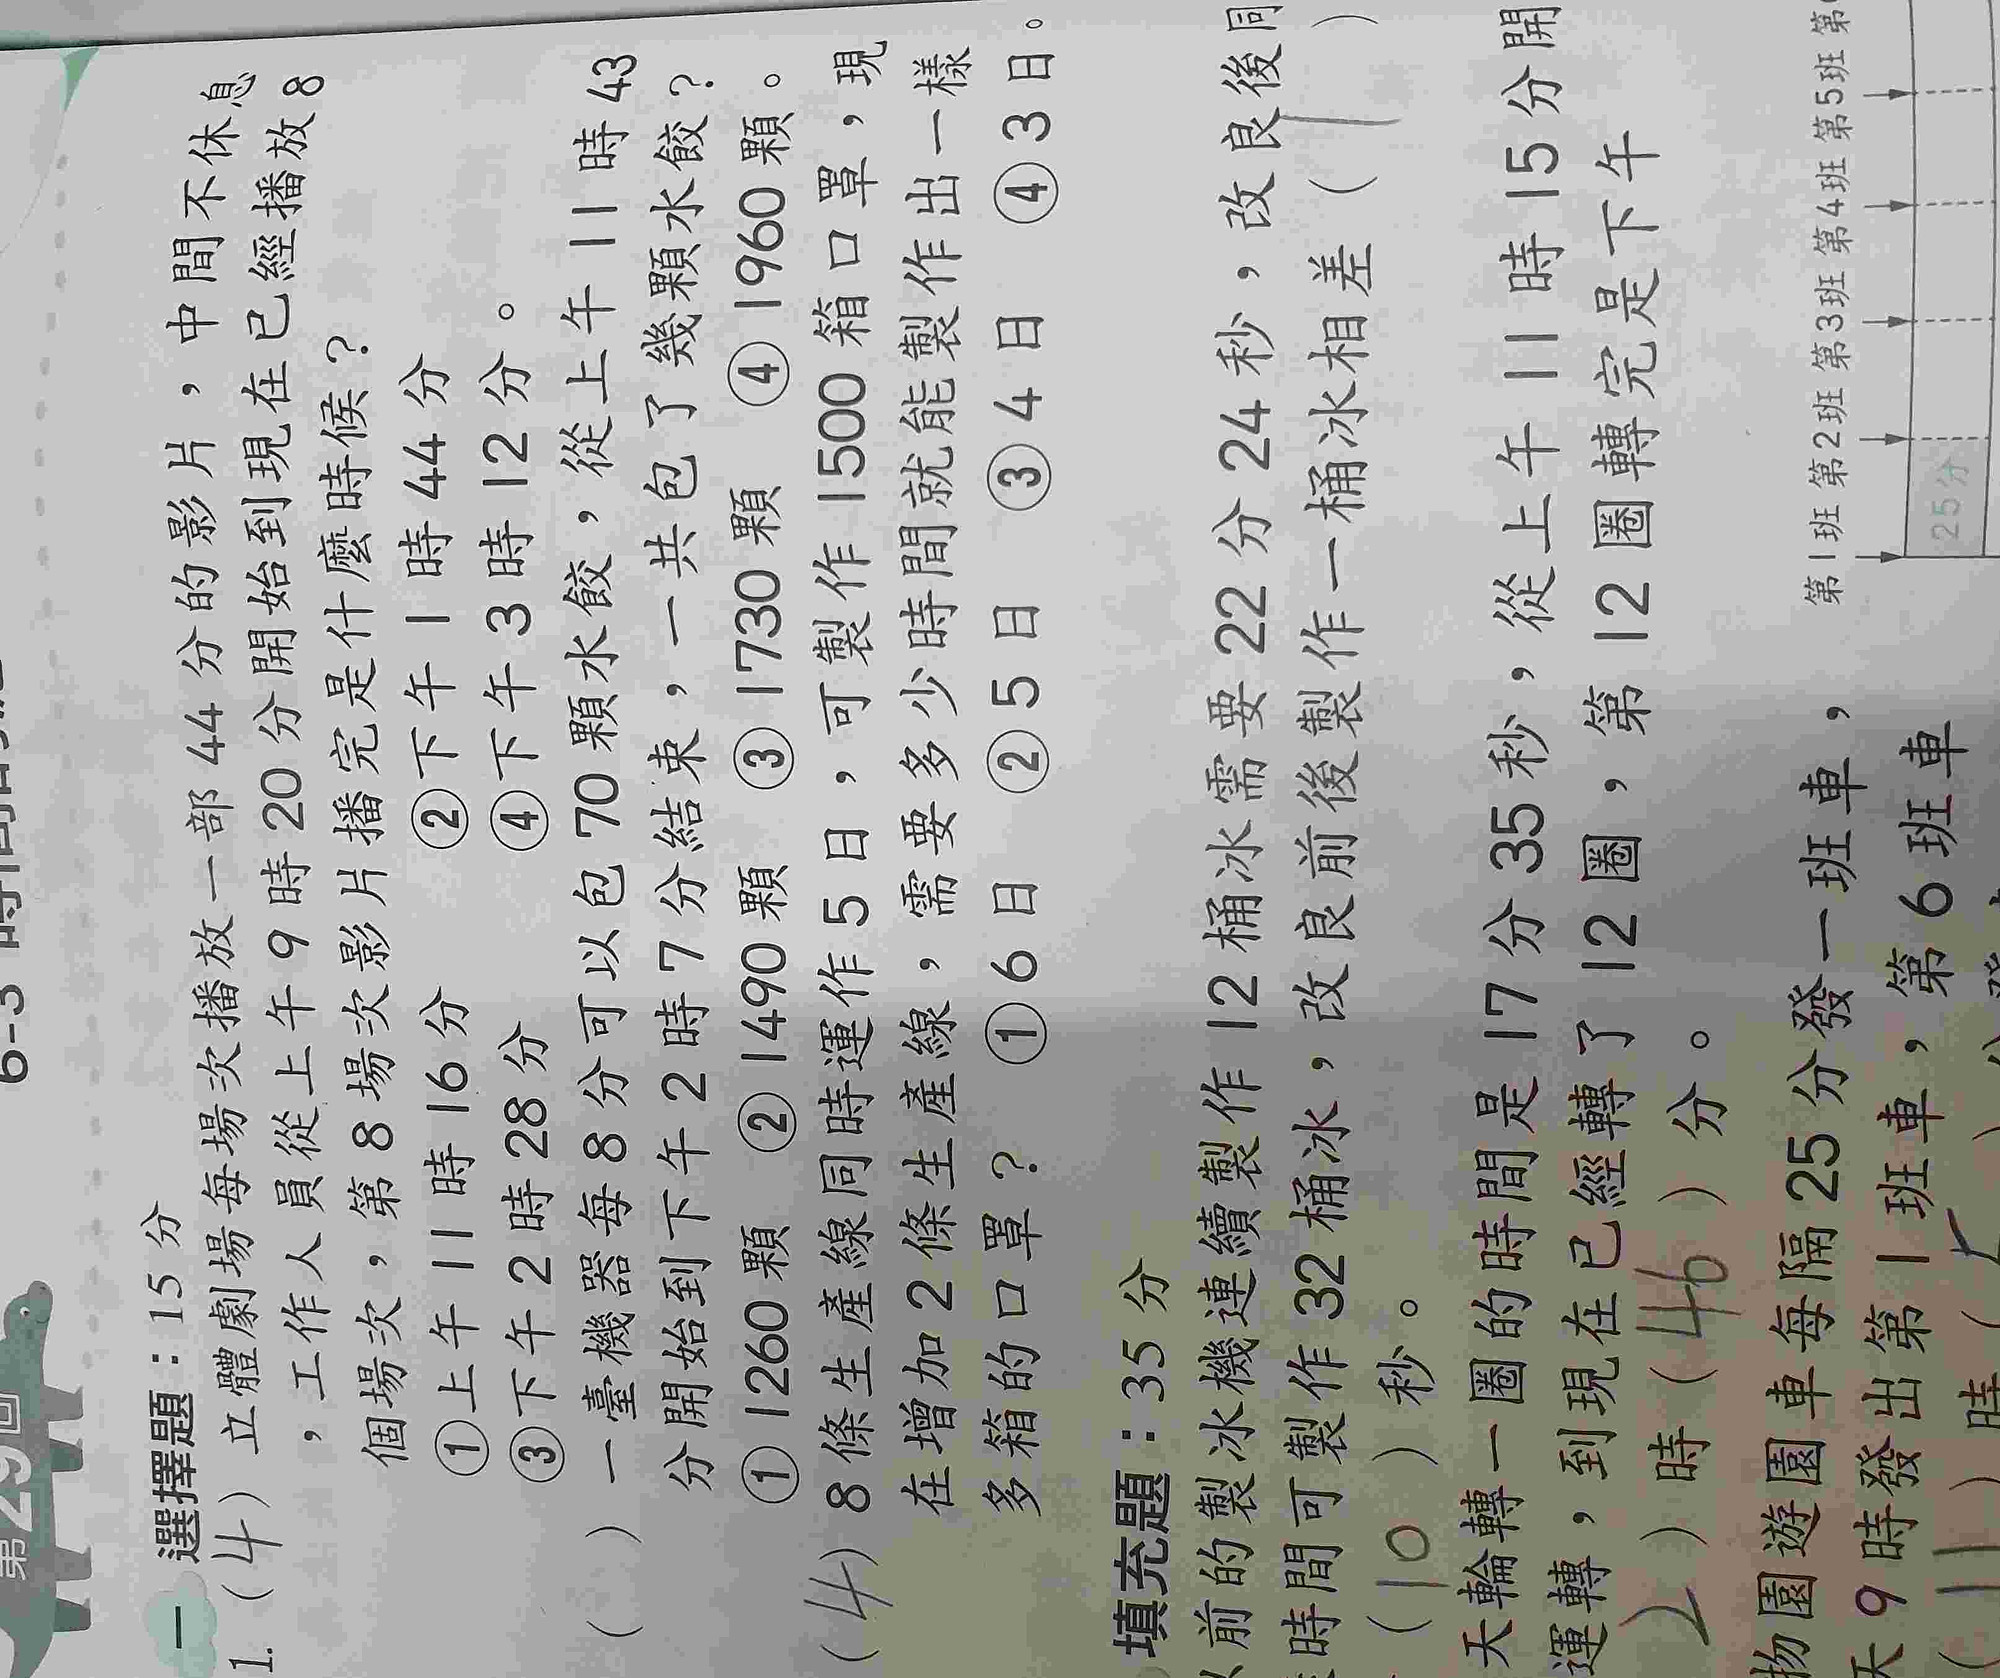 第29回
一 選擇題：15分
1. (4) 立體劇場每場次播放一部44分的影片，中間不休息
，工作人員從上午9時20分開始到現在已經播放8
個場次，第8場次影片播完是什麼時候？
①上午11時16分 ②下午1時44分
③下午2時28分 ④下午3時12分。
( ) 一臺機器每8分可以包70顆水餃，從上午11時43
分開始到下午2時7分結束，一共包了幾顆水餃？
①1260顆 ②1490顆 ③1730顆 ④1960顆。
(4) 8條生產線同時運作5日，可製作1500箱口罩，現
在增加2條生產線，需要多少時間就能製作出一樣
多箱的口罩？ ①6日 ②5日 ③4日 ④3日。
填充題：35分
前的製冰機連續製作12桶冰需要22分24秒，改良後同
時間可製作32桶冰，改良前後製作一桶冰相差 (1)
(10) 秒。
天輪轉一圈的時間是17分35秒，從上午11時15分開
運轉，到現在已經轉了12圈，第12圈轉完是下午
2) 時 (46) 分。
物園遊園車每隔25分發一班車，
天9時發出第1班車，第6班車
(11) 時 (5
第1班 第2班 第3班 第4班 第5班 第
25分